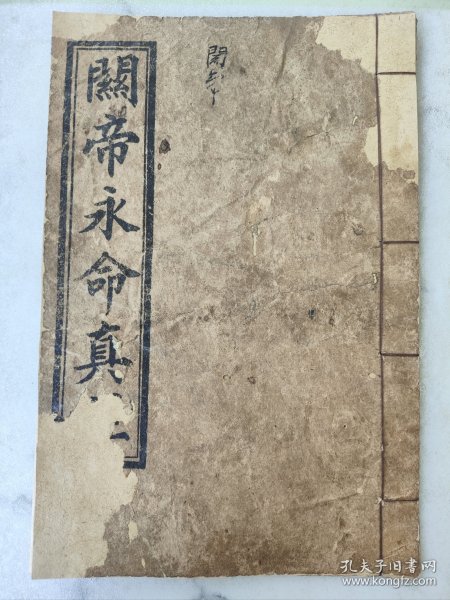 關帝永命真
孔夫子旧书网
www.kongfz.com